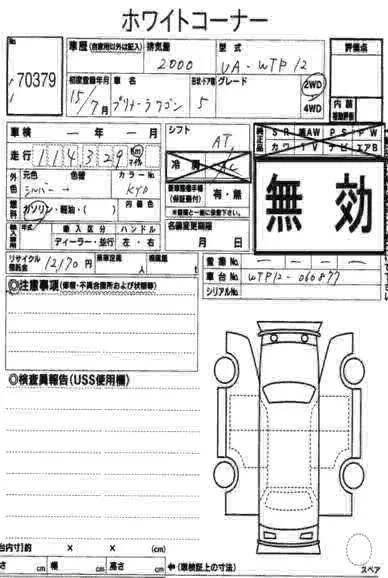 ホワイトコーナー
No.
70379
車歴 (自家用以外は記入) 排気量 型式 評価点
2000 UA-WTP12
初度登録年月 車名 形状・ドア数 グレード
15/7月 プリメーラワゴン 5
2WD
4WD
内装
車検 ― 年 ― 月
シフト
AT
走行 114329 Km マイル
冷房 AC
S R 革AW P S P W
カワ T V ナビ エアB
外色 元色 色替 カラーNo.
シルバー → KY0
燃料 ガソリン・軽油・( ) 内装色
有・無
無効
輸入車 年式 輸入区分 ハンドル
ディーラー・並行 左・右
名義変更期限
月 日
リサイクル預託金 12170円 乗車定員 人 積載量 t
車台No. WTP12-060877
シリアルNo.
◎注意事項 (修復・不具合箇所および状態等)
◎検査員報告 (USS使用欄)
台内寸)約 × × (cm)
さ cm 幅 cm 高さ cm
←(車検証上の寸法)
スペア